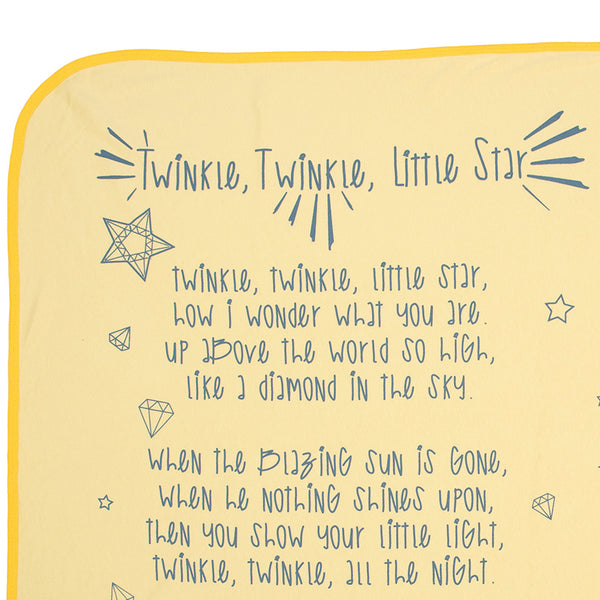 Twinkle, Twinkle, Little Star
twinkle, twinkle, little star,
how i wonder what you are.
up above the world so high,
like a diamond in the sky.
when the blazing sun is gone,
when he nothing shines upon,
then you show your little light,
twinkle, twinkle, all the night.